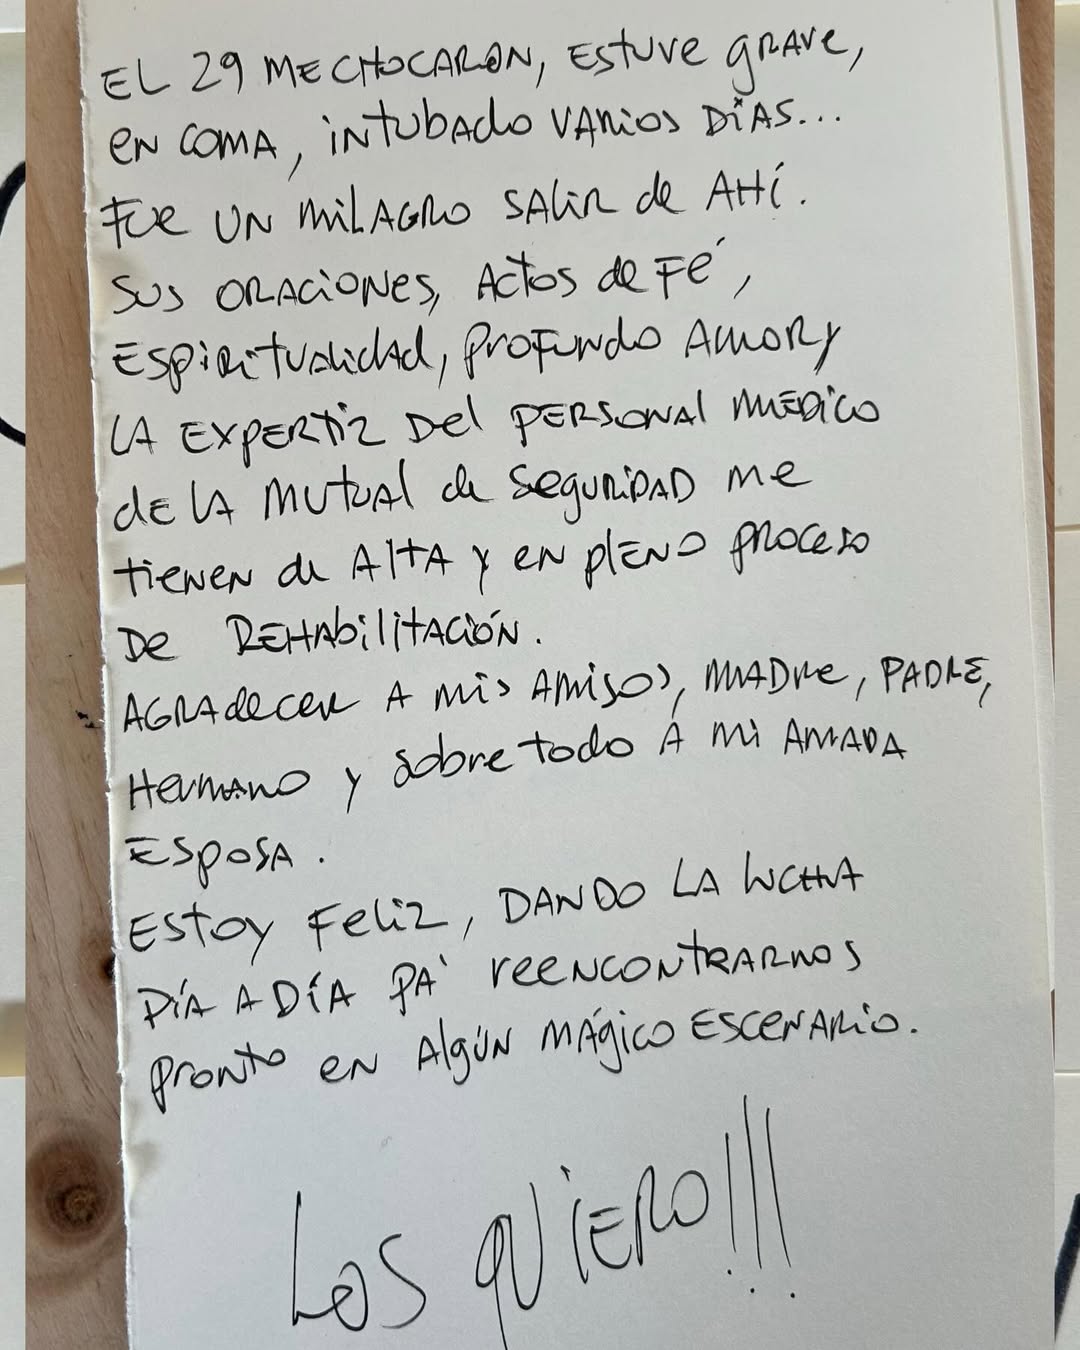 EL 29 ME CHOCARON, ESTUVE GRAVE,
EN COMA, INTUBADO VARIOS DÍAS...
FUE UN MILAGRO SALIR de AHÍ.
SUS ORACIONES, ACTOS de FÉ,
ESPIRITUALIDAD, PROFUNDO AMOR Y
LA EXPERTIZ DEL PERSONAL MÉDICO
de LA MUTUAL de SEGURIDAD me
tienen de ALTA y en pleno proceso
DE REHABILITACIÓN.
AGRADECER A MIS AMIGOS, MADRE, PADRE,
HERMANO y sobre todo A mi AMADA
ESPOSA.
ESTOY FELIZ, DANDO LA LUCHA
DÍA A DÍA PA' REENCONTRARNOS
PRONTO en ALGÚN MÁGICO ESCENARIO.
LOS QUIERO!!!